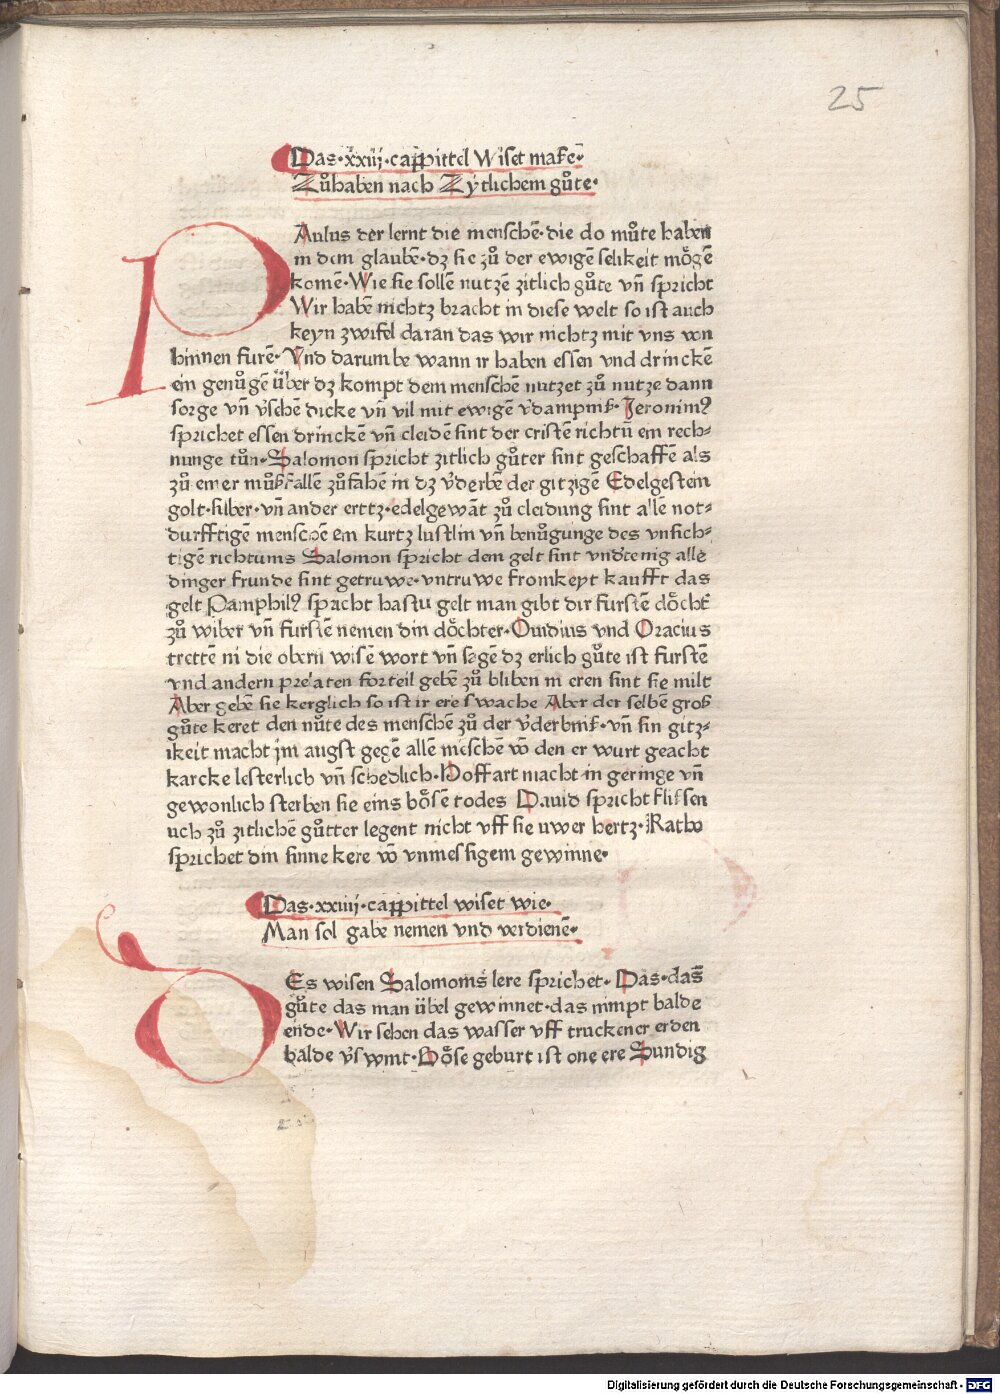 25
Das·xxiij·cappittel Wiset maſe·
Zůhaben nach Zytlichem gůte·
PAulus der lernt die menschē·die do můte haben
in dem glaubē·dz sie zů der ewigē selikeit mȯgē
komē·Wie sie sollē nutzē zitlich gůte vñ spricht
Wir habē nichtz bracht in diese welt so ist auch
keyn zwifel daran das wir nichtz mit vns von
hinnen furē·Vnd darumbe wann ir haben essen vnd drinckē
ein genůgē ůber dz kompt dem menschē nutzet zů nutze dann
sorge vñ v̇schē dicke vñ vil mit ewigē v̇dampmß·Jeronimꝰ
sprichet essen drinckē vñ cleidē sint der cristē richtū ein rech⸗
nunge tůn·Salomon spricht zitlich gůter sint geschaffē als
zů einer můßfallē zůfahē in dz v̇derbē der gitzigē Edelgestein
golt·silber·vñ ander erttz·edelgewāt zů cleidung sint allē not⸗
durfftigē menschē ein kurtz lustlin vñ benůgunge des vnsich⸗
tigē richtums Salomon spricht dem gelt sint vndṫenig allē
dinger frunde sint getruwe·vntruwe fromkeyt kaufft das
gelt Pamphilꝰ spricht hastu gelt man gibt dir furstē dȯcht̄
zů wiber vñ furstē nemen din dȯchter·Ouidius vnd Oracius
trettē in die obern wisē wort vñ sagē dz erlich gůte ist furstē
vnd andern prelaten forteil gebē zů bliben in eren sint sie milt
Aber gebē sie kerglich so ist ir ere swache Aber der selbē groß
gůte keret den nůte des menschē zů der v̇derbniß·vñ sin gitz⸗
ikeit macht jm angst gegē allē mēschē vō den er wurt geacht
karcke lesterlich vñ schedlich·Hoffart macht in geringe vñ
gewonlich sterben sie eins bȯsē todes Dauid spricht flißen
uch zů zitlichē gůtter legent nicht vff sie uwer hertz·Katho
sprichet din sinne kere vō vnmessigem gewinne·
Das·xxiiij·cappittel wiset wie·
Man sol gabe nemen vnd verdienē·
DEs wisen Salomons lere sprichet·Das·das
gůte das man übel gewinnet·das nimpt balde
ende·Wir sehen das wasser vff truckener erden
balde v̇swint·Bȯse geburt ist one ere Sundig
Digitalisierung gefördert durch die Deutsche Forschungsgemeinschaft - DFG